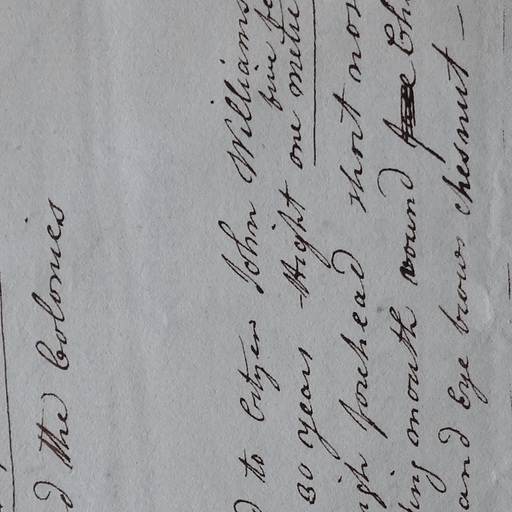 d the Colonies
to Cityzn John Williams
five fe
30 years Hight one metre
igh forehead short nos
ling mouth round face Ch
and Eye brows chesnut —